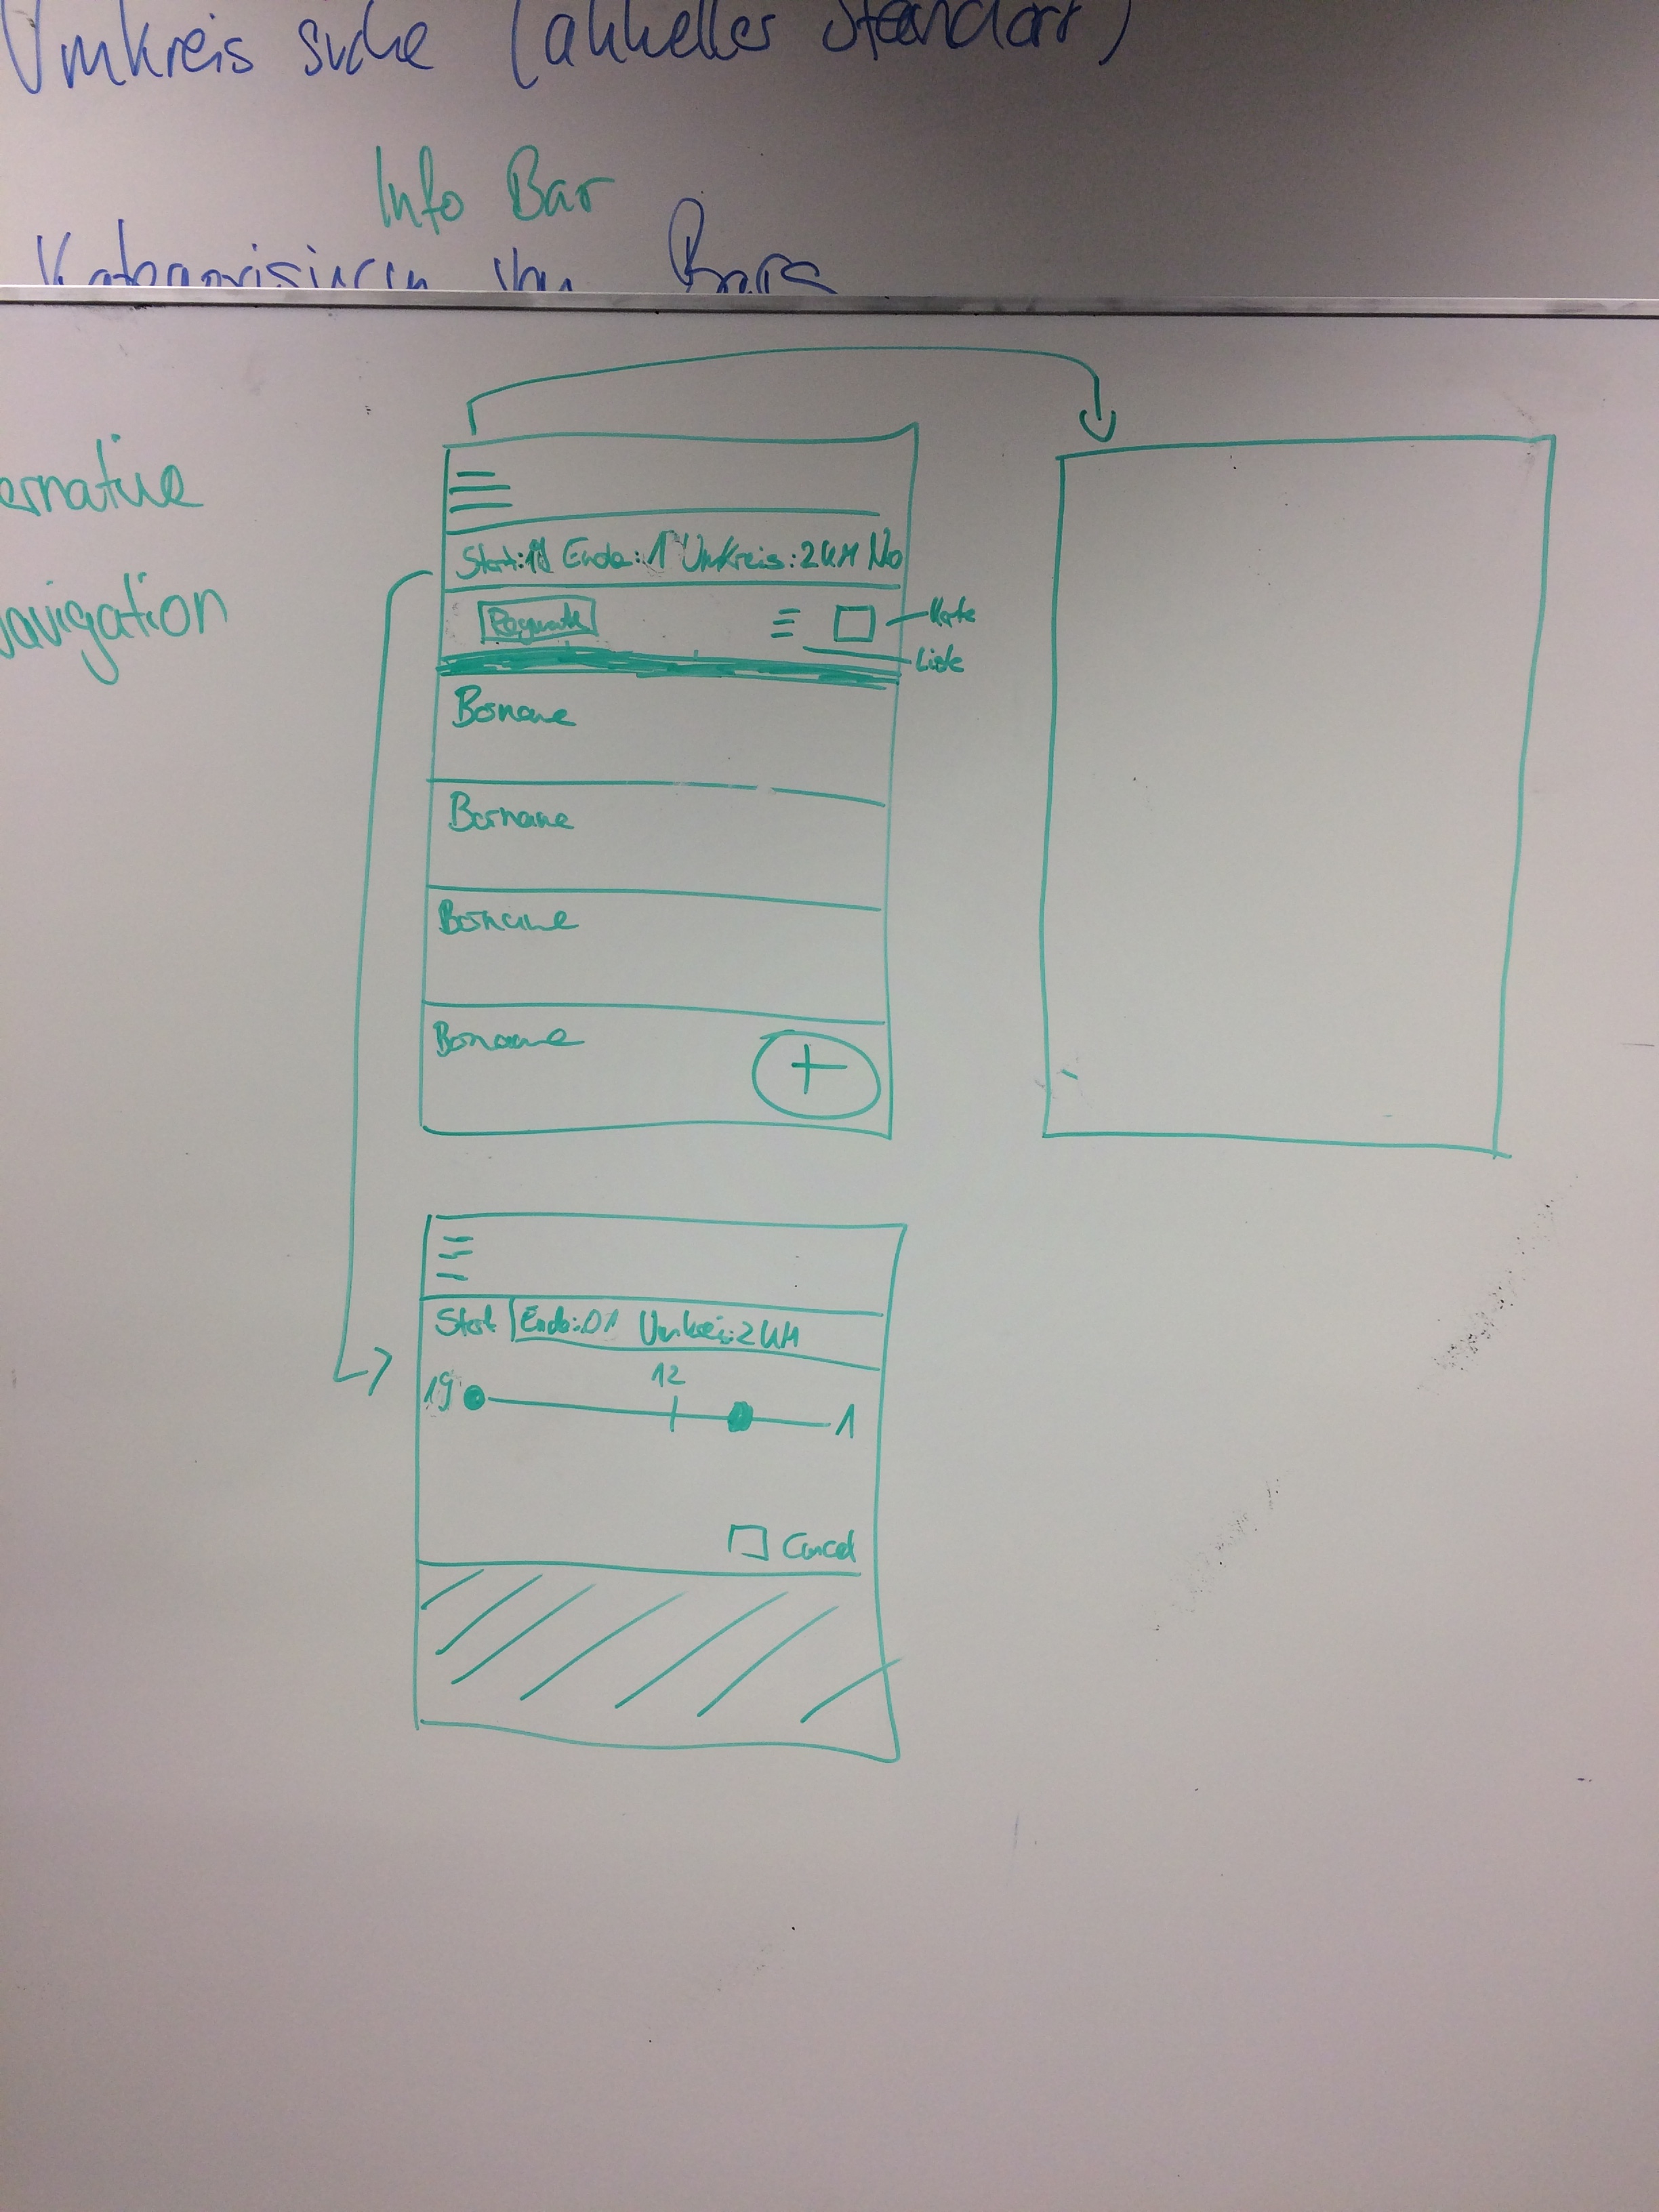 Umkreis suche (aktueller Standort)
Info Bar
Kategorisieren von Bars
ernative
avigation
Start:19 Ende:1 Umkreis:2KM No
Karte
Liste
Barname
Barname
Barname
Barname
+
Start Ende:01 Umkreis:2KM
19 12 1
Cancel